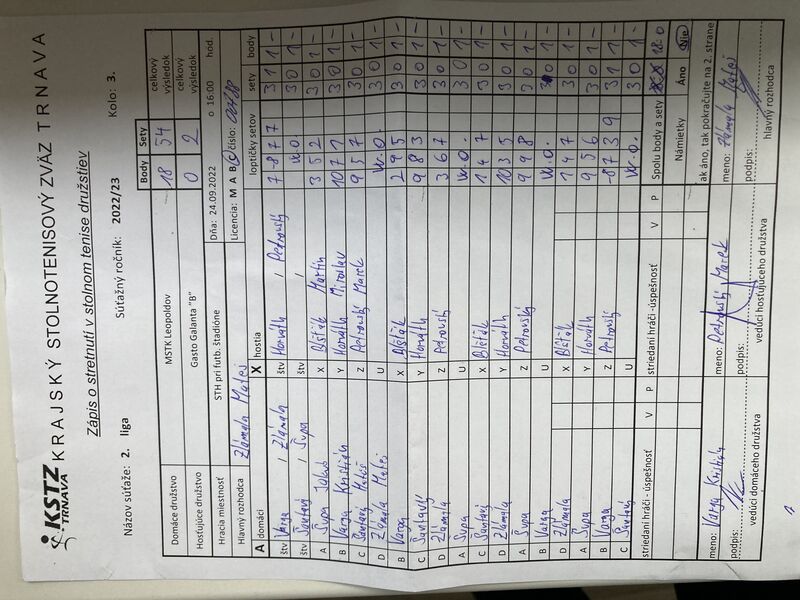 KSTZ TRNAVA KRAJSKÝ STOLNOTENISOVÝ ZVÄZ TRNAVA
Zápis o stretnutí v stolnom tenise družstiev
Názov súťaže: 2. liga Súťažný ročník: 2022/23 Kolo: 3.
Body Sety
Domáce družstvo MSTK Leopoldov 18 54 celkový výsledok
Hosťujúce družstvo Gasto Galanta "B" 0 2 celkový výsledok
Hracia miestnosť STH pri futb. štadióne Dňa: 24.09.2022 o 16:00 hod.
Hlavný rozhodca Zlámala Matej Licencia: M A B C číslo:
A domáci X hostia loptičky setov sety body
štv Varga / Zlámala štv Horváth / Petrovský 7 -8 7 7 3 1 1 -
štv Šantavý / Šupa štv / w.o. 3 0 1 -
A Šupa Jakub X Bišťák Martin 3 5 2 3 0 1 -
B Varga Kristián Y Horváth Miroslav 10 7 1 3 0 1 -
C Šantavý Matúš Z Petrovský Marek 9 5 7 3 0 1 -
D Zlámala Matej U w.o. 3 0 1 -
B Varga X Bišťák 2 9 5 3 0 1 -
C Šantavý Y Horváth 9 8 3 3 0 1 -
D Zlámala Z Petrovský 3 6 7 3 0 1 -
A Šupa U w.o. 3 0 1 -
C Šantavý X Bišťák 1 4 7 3 0 1 -
D Zlámala Y Horváth 10 3 5 3 0 1 -
A Šupa Z Petrovský 9 9 8 3 0 1 -
B Varga U w.o. 3 0 1 -
D Zlámala X Bišťák 1 4 7 3 0 1 -
A Šupa Y Horváth 9 5 6 3 0 1 -
B Varga Z Petrovský -8 7 3 9 3 1 1 -
C Šantavý U w.o. 3 0 1 -
striedaní hráči - úspešnosť V P striedaní hráči -úspešnosť V P Spolu body a sety 18:0
Námietky Áno Nie
ak áno, tak pokračujte na 2. strane
meno: Varga Kristián meno: Petrovský Marek meno: Zlámala Matej
podpis: podpis: podpis:
vedúci domáceho družstva vedúci hosťujúceho družstva hlavný rozhodca
1